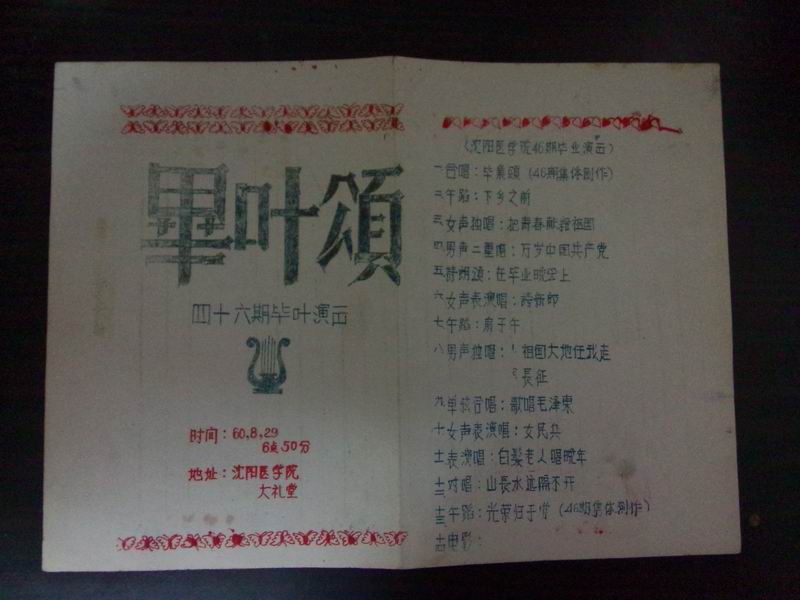 畢叶頌
四十六期毕叶演出
时间：60.8.29
6点50分
地址：沈阳医学院
大礼堂
（沈阳医学院46期毕业演出）
一合唱：毕業頌（46期集体创作）
二午蹈：下乡之前
三女声独唱：把青春献给祖国
四男声二重唱：万岁中国共产党
五诗朗诵：在毕业晚会上
六女声表演唱：誇新郎
七午蹈：扇子午
八男声独唱：1祖国大地任我走
2長征
九单弦合唱：歌唱毛泽東
十女声表演唱：女民兵
十一表演唱：白髮老人唱晚年
十二对唱：山長水远隔不开
十三午蹈：光荣归于党（46期集体创作）
十四电影：